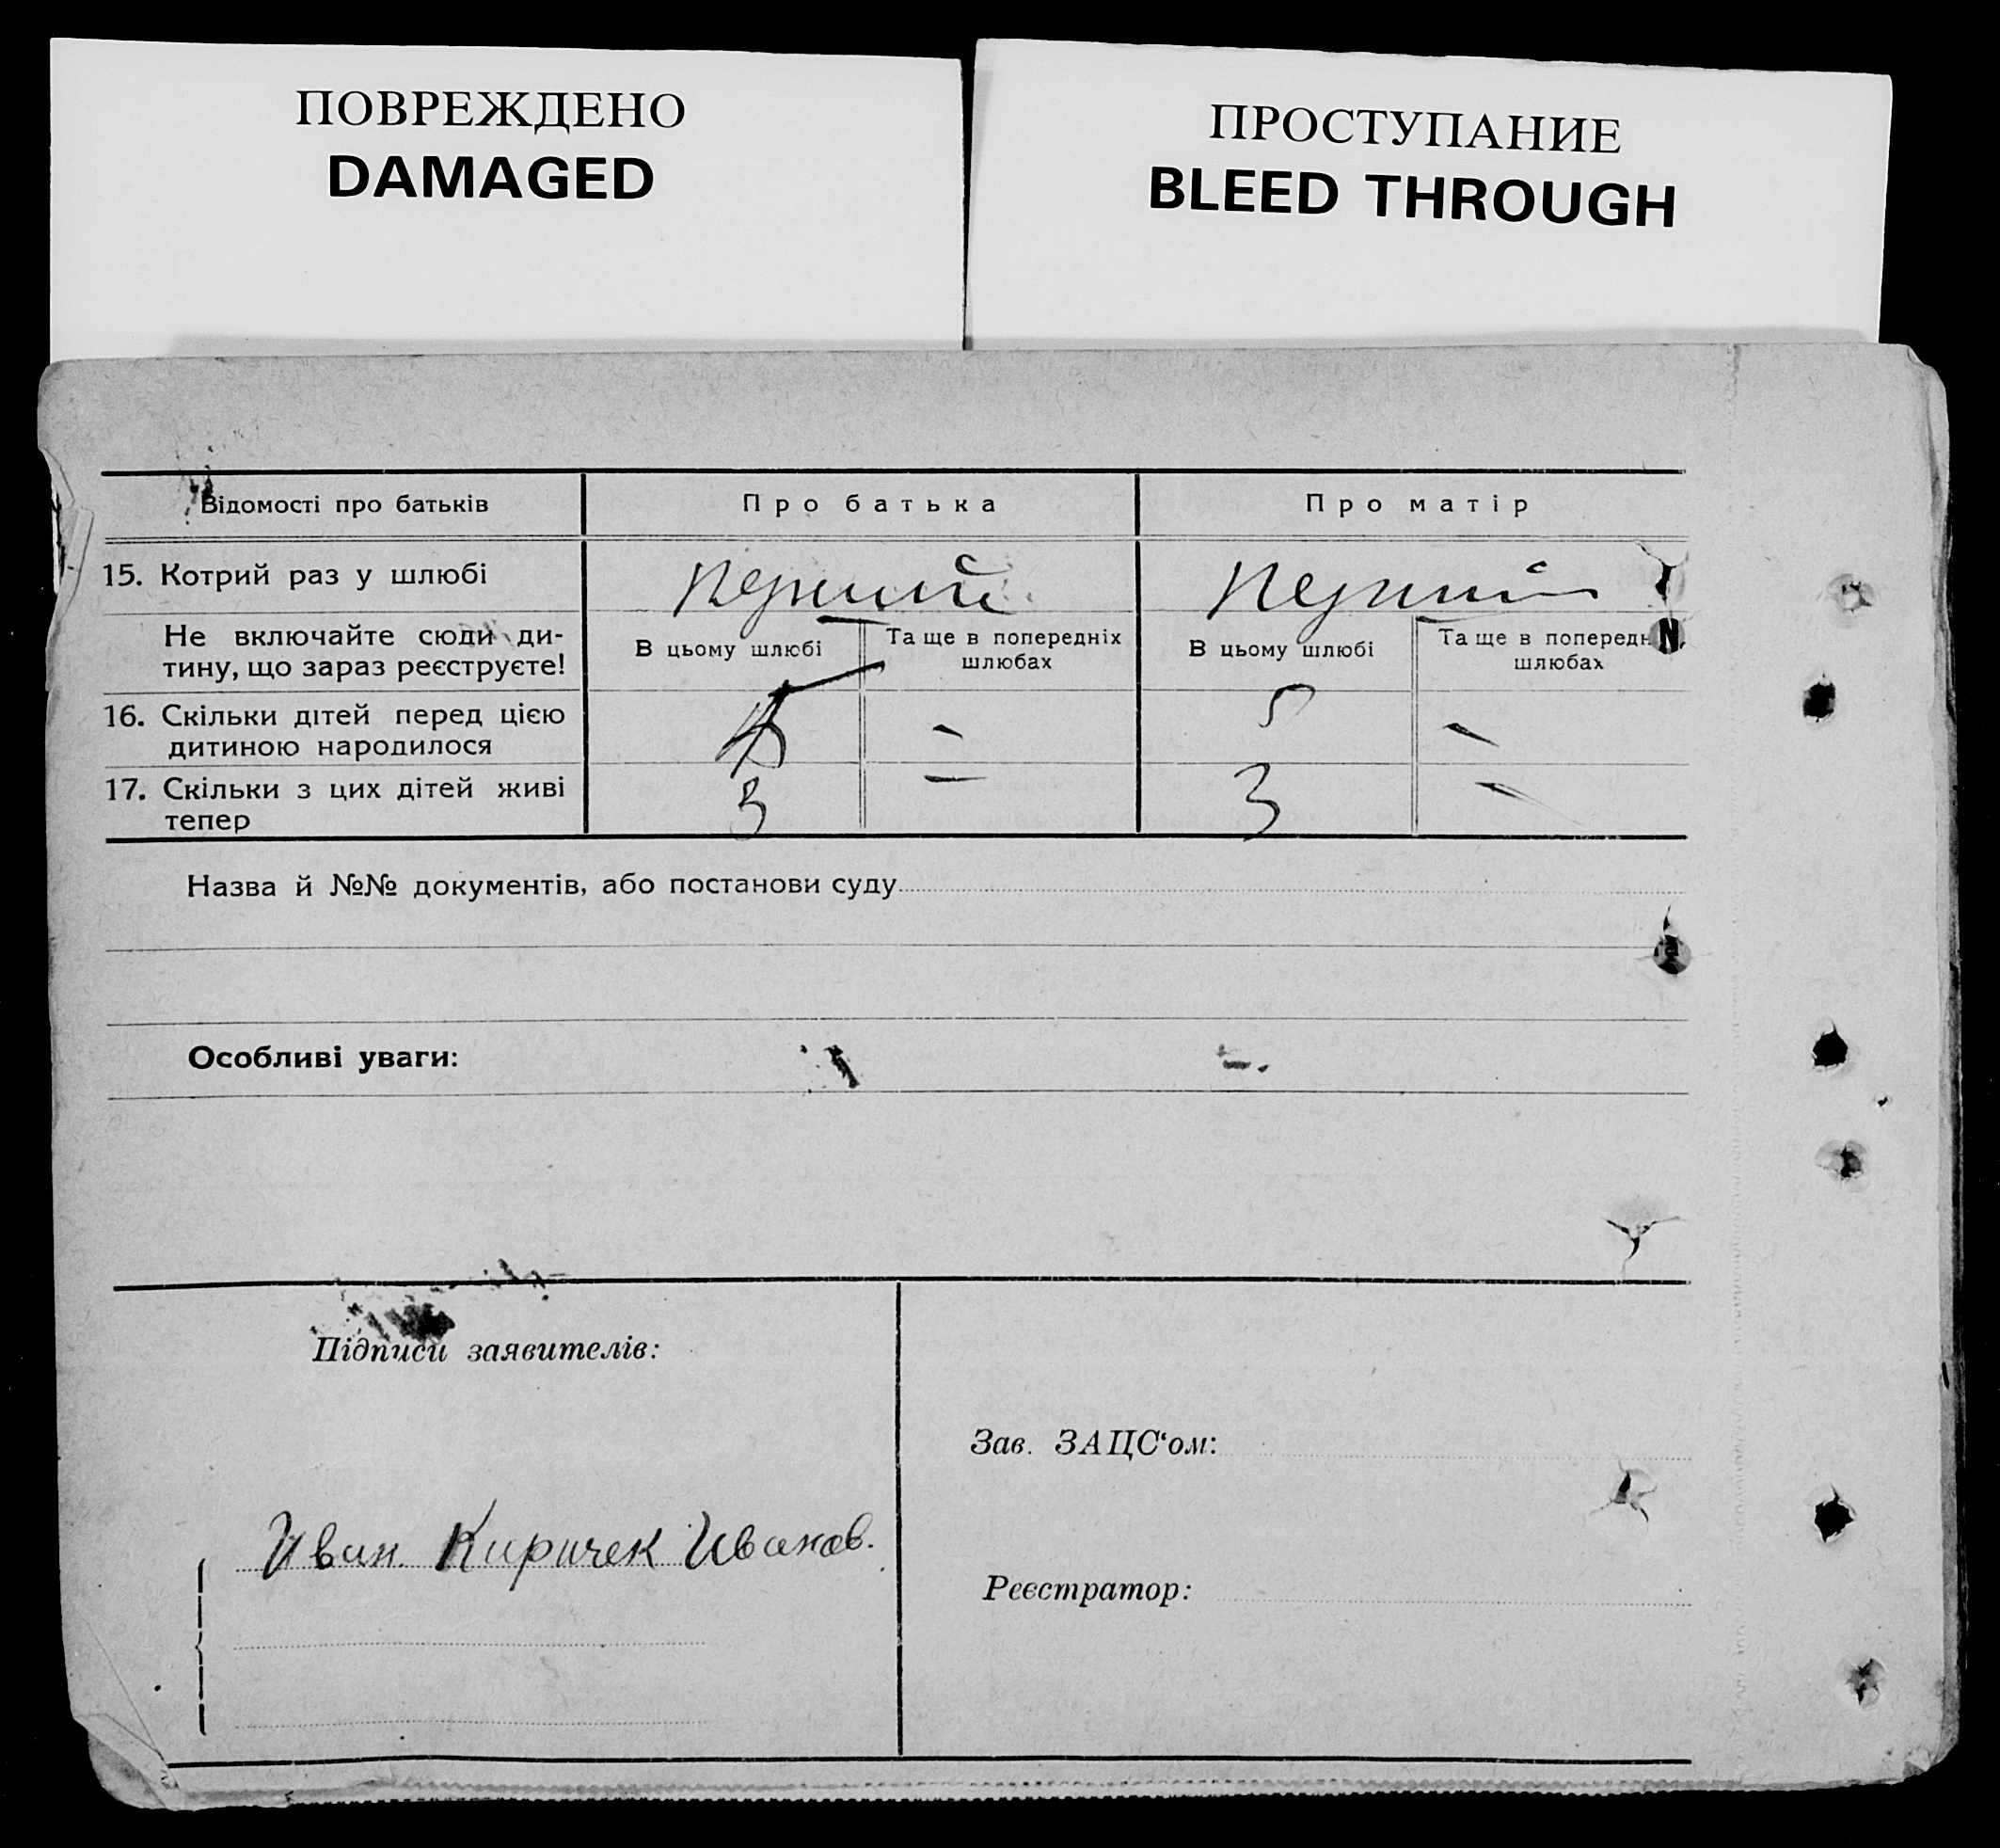 ПОВРЕЖДЕНО
DAMAGED
ПРОСТУПАНИЕ
BLEED THROUGH
Відомості про батьків
Про батька
Про матір
15. Котрий раз у шлюбі
перший
перший
Не включайте сюди ди-
тину, що зараз реєструєте!
В цьому шлюбі
Та ще в попередніх
шлюбах
В цьому шлюбі
Та ще в попередн
шлюбах
16. Скільки дітей перед цією
дитиною народилося
5
-
5
-
17. Скільки з цих дітей живі
тепер
3
-
3
-
Назва й №№ документів, або постанови суду
Особливі уваги:
Підписи заявителів:
Иван Киричек Иванов.
Зав. ЗАЦС‘ом:
Реєстратор: